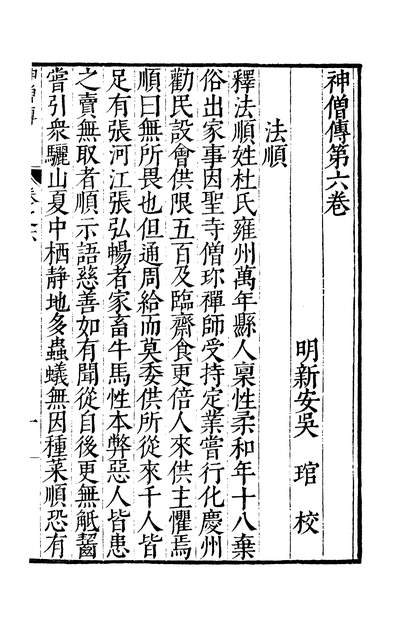 神僧傳第六卷
明新安吳琯校
法順
釋法順姓杜氏雍州萬年縣人稟性柔和年十八棄
俗出家事因聖寺僧珎禪師受持定業嘗行化慶州
勸民設會供限五百及臨齋食更倍人來供主懼焉
順曰無所畏也但通周給而莫委供所從來千人皆
足有張河江張弘暢者家畜牛馬性本弊惡人皆患
之賣無取者順示語慈善如有聞從自後更無觝齧
嘗引衆驪山夏中栖静地多蟲蟻無因種菜順恐有
一